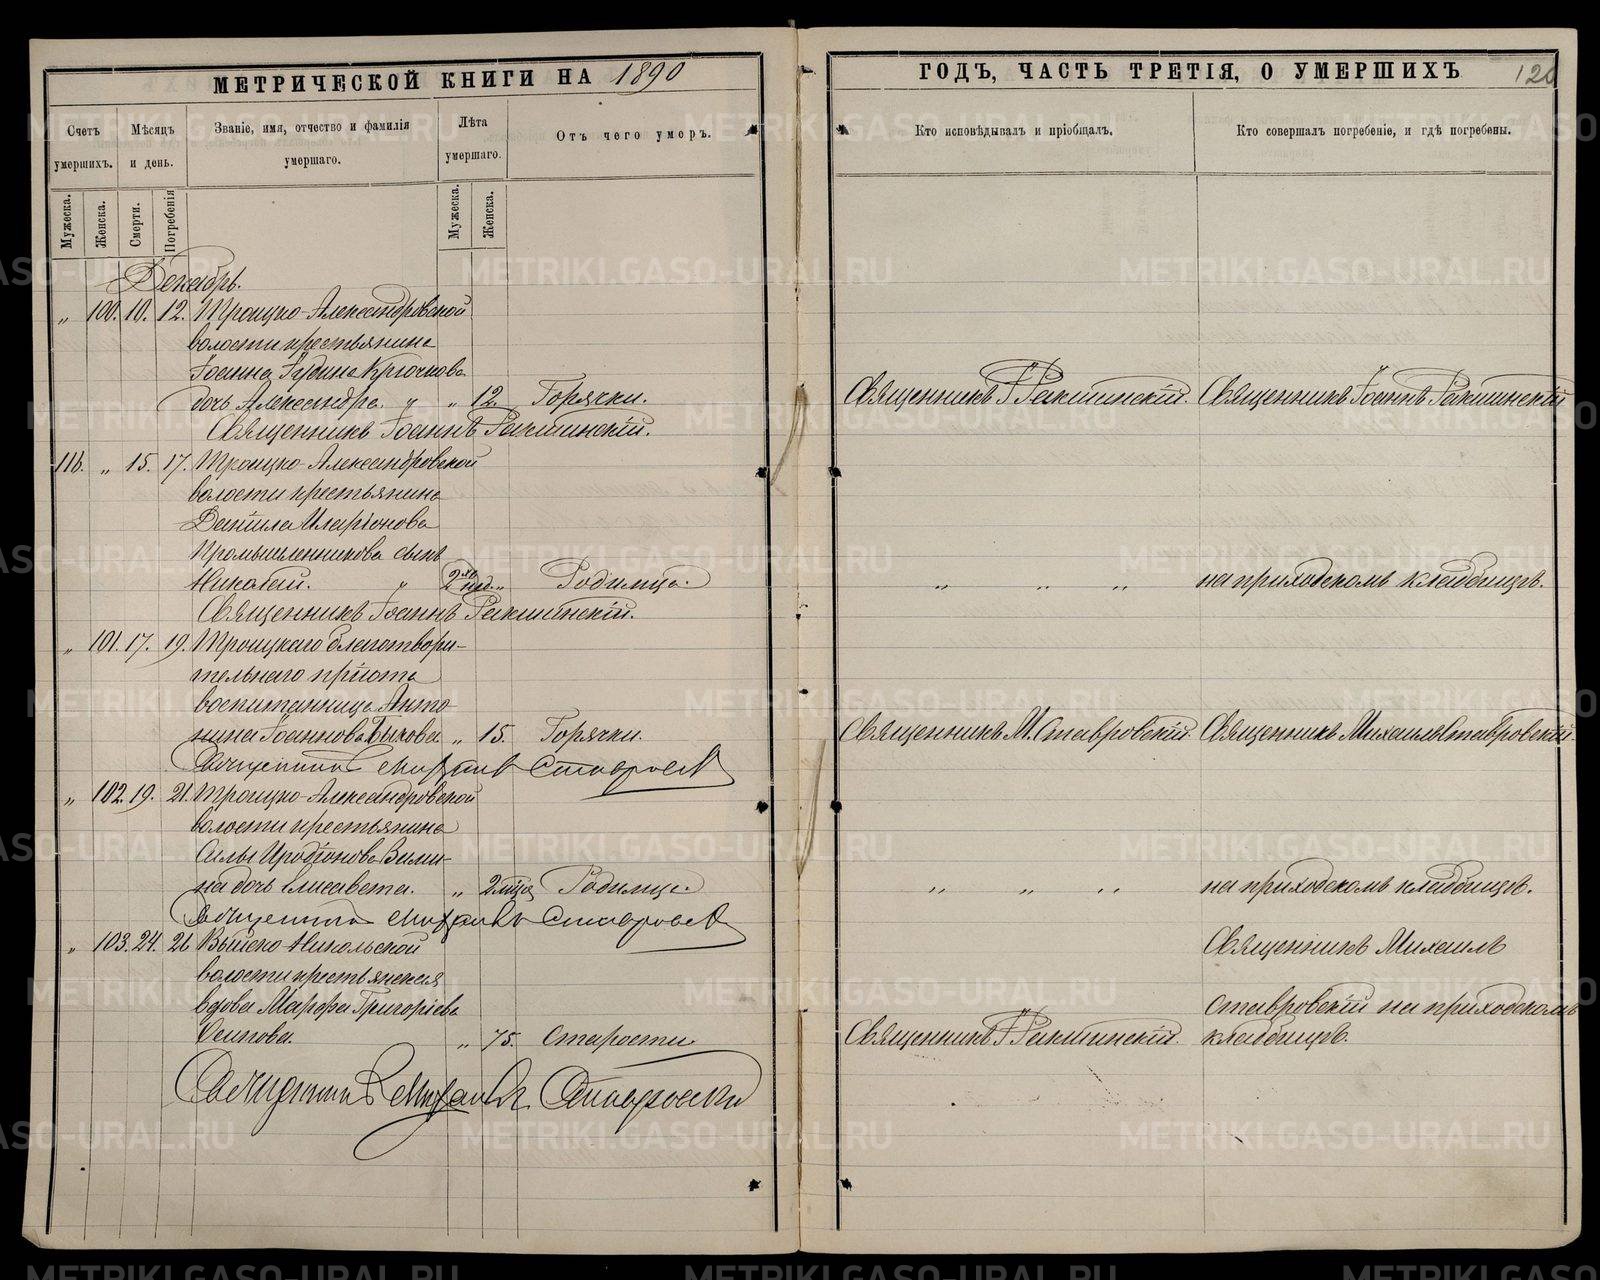 МЕТРИЧЕСКОЙ КНИГИ НА 1890
Счетъ умершихъ.
Мѣсяцъ и день.
Званіе, имя, отчество и фамилія умершаго.
Лѣта умершаго.
Отъ чего умеръ.
Мужеска.
Женска.
Смерти.
Погребенія
Мужеска.
Женска.
Декабрь.
„ 100. 10. 12. Троицко-Александровской
волости крестьянина
Іоанна Крючкова
дочь Александра. „ „ 12. Горячки.
Священникъ Іоаннъ Ракшинскій.
116. „ 15. 17. Троицко-Александровской
волости крестьянина
Даніила Иларіонова
Промышленникова сынъ
Николай. „ 2 нед. „ Родимца.
Священникъ Іоаннъ Ракшинскій.
„ 101. 17. 19. Троицкаго благотвори-
тельнаго пріюта
воспитанница Анто-
нина Іоаннова Быкова „ 15. Горячки.
Священникъ Михаилъ Ставровскій
„ 102. 19. 21. Троицко-Александровской
волости крестьянина
Силы Иродіонова Вили-
на дочь Елисавета. „ 2 мѣс. Родимца.
Священникъ Михаилъ Ставровскій
„ 103. 24. 26 Выйско-Никольской
волости крестьянская
вдова Марфа Григоріева
Осипова. „ 75. Старости.
Священникъ Михаилъ Ставровскій
ГОДЪ, ЧАСТЬ ТРЕТІЯ, О УМЕРШИХЪ 120
Кто исповѣдывалъ и пріобщалъ.
Кто совершалъ погребеніе, и гдѣ погребены.
Священникъ І. Ракшинскій. Священникъ Іоаннъ Ракшинскій
„ „ „ на приходскомъ кладбищѣ.
Священникъ М. Ставровскій Священникъ Михаилъ Ставровскій
„ „ „ на приходскомъ кладбищѣ.
Священникъ Михаилъ
Ставровскій на приходскомъ
Священникъ І. Ракшинскій. кладбищѣ.
METRIKI.GASO-URAL.RU